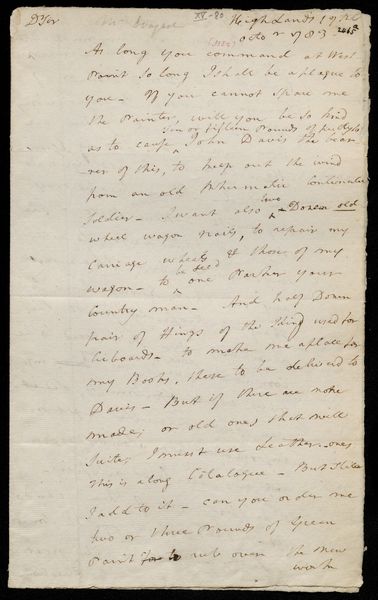 High Lands 17
Octor 2 1783
XV-80
DSer
As long you command at West
Point so long I shall be a plague to
you – If you cannot spare me
the Painter, will you be so kind
Ten or fifteen Pounds of
as to John Davis the bear-
rer of this, to keep out the wind
from an old Rhumatic Continental
Soldier – I want also two Dozen old
wheel wagon nails, to repair my
Carriage wheels & those of my
wagon – to one your
Country man – And half Dozen
pair of Hings of the used for
– to make me a place for
my Books, these to be deliverd to
Davis – But if there are none
made, or old ones that will
Suite, I must use Leather ones
This is a long Catalogue – But
I add to it – can you order me
two or three Pounds of Green
Paint to rub over the new
work